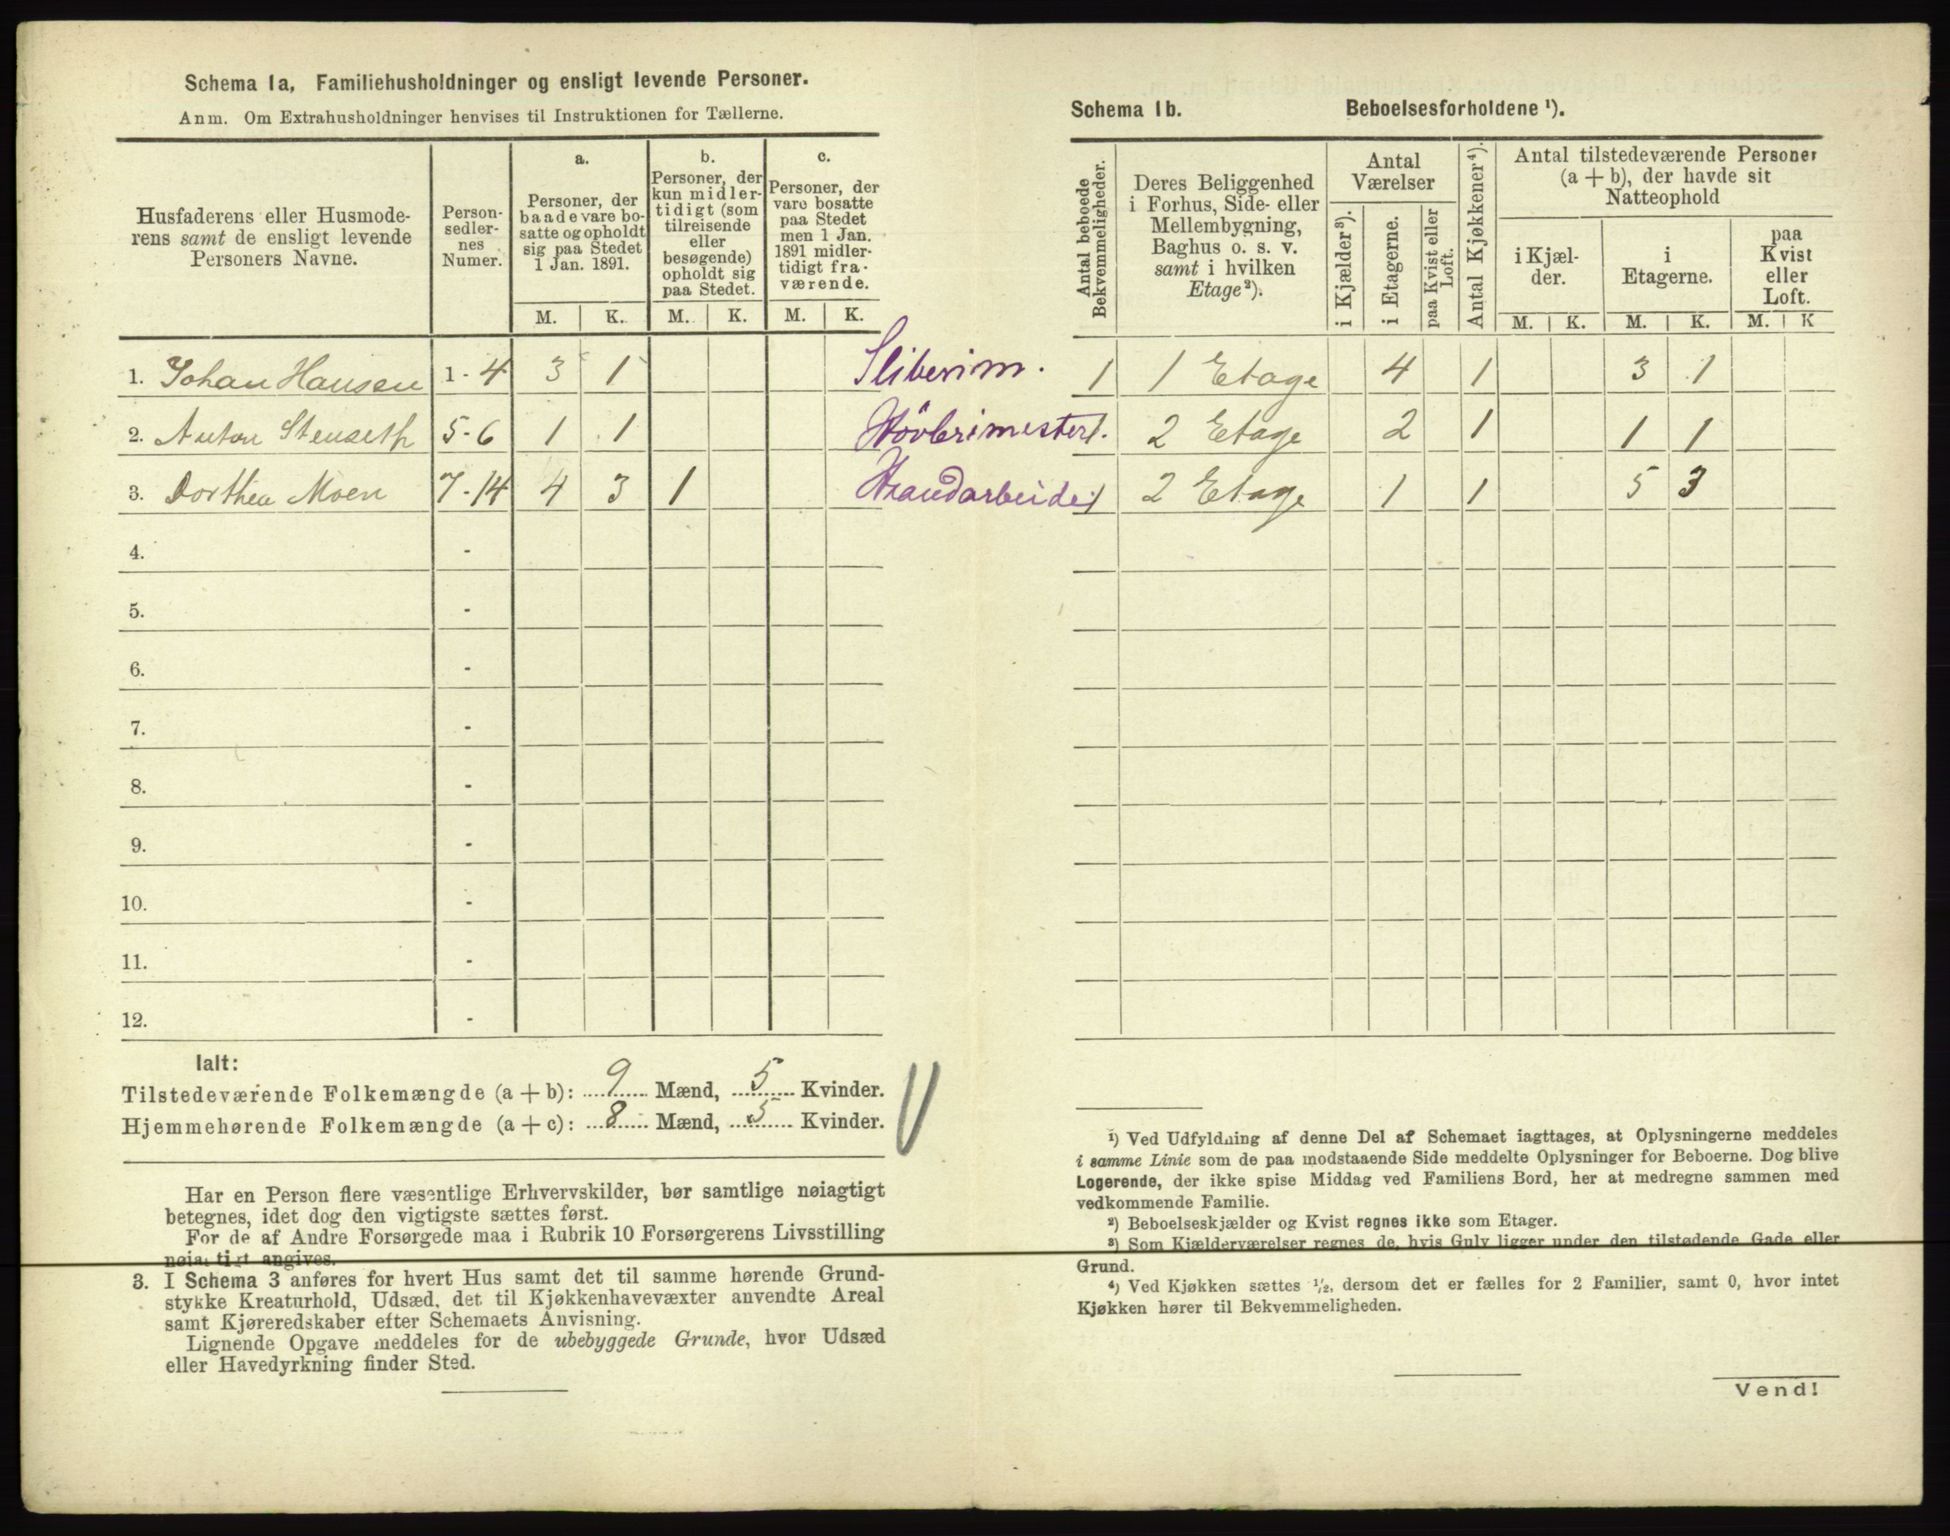 Schema 1a, Familiehusholdninger og ensligt levende Personer.
Anm. Om Extrahusholdninger henvises til Instruktionen for Tællerne.
Husfaderens eller Husmode-
rens samt de ensligt levende
Personers Navne.
Person-
sedler-
nes
Numer.
a.
Personer, der
baade vare bo-
satte og opholdt
sig paa Stedet
1 Jan. 1891.
b.
Personer, der
kun midler-
tidigt (som
tilreisende
eller
besøgende)
opholdt sig
paa Stedet.
c.
Personer, der
vare bosatte
paa Stedet
men 1 Jan.
1891 midler-
tidigt fra-
værende.
M. K. M. K. M. K.
1. Johan Hansen 1-4 3 1
2. Anton Stenseth 5-6 1 1
3. Dorthea Moen 7-14 4 3 1
4. -
5. -
6. -
7. -
8. -
9. -
10. -
11. -
12. -
Ialt:
Tilstedeværende Folkemængde (a + b): 9 Mænd, 5 Kvinder.
Hjemmehørende Folkemængde (a + c): 8 Mænd, 5 Kvinder.
Har en Person flere væsentlige Erhvervskilder, bør samtlige nøiagtigt
betegnes, idet dog den vigtigste sættes først.
For de af Andre Forsørgede maa i Rubrik 10 Forsørgerens Livsstilling
nøiagtigt angives.
3. I Schema 3 anføres for hvert Hus samt det til samme hørende Grund-
stykke Kreaturhold, Udsæd, det til Kjøkkenhavevæxter anvendte Areal
samt Kjøreredskaber efter Schemaets Anvisning.
Lignende Opgave meddeles for de ubebyggede Grunde, hvor Udsæd
eller Havedyrkning finder Sted.
Schema 1b. Beboelsesforholdene ¹).
Antal beboede
Bekvemmeligheder.
Deres Beliggenhed
i Forhus, Side- eller
Mellembygning,
Baghus o. s. v.
samt i hvilken
Etage²).
Antal
Værelser
i Kjælder³).
i Etagerne.
paa Kvist eller
Loft.
Antal Kjøkkener⁴).
Antal tilstedeværende Personer
(a + b), der havde sit
Natteophold
i Kjæl-
der.
i
Etagerne.
paa
Kvist
eller
Loft.
M. K. M. K. M. K
Sliberim. 1 1 Etage 4 1 3 1
Hövlerimester. 1 2 Etage 2 1 1 1
Haandarbeide. 1 2 Etage 1 1 5 3
¹) Ved Udfyldning af denne Del af Schemaet iagttages, at Oplysningerne meddeles
i samme Linie som de paa modstaaende Side meddelte Oplysninger for Beboerne. Dog blive
Logerende, der ikke spise Middag ved Familiens Bord, her at medregne sammen med
vedkommende Familie.
²) Beboelseskjælder og Kvist regnes ikke som Etager.
³) Som Kjælderværelser regnes de, hvis Gulv ligger under den tilstødende Gade eller
Grund.
⁴) Ved Kjøkken sættes ½, dersom det er fælles for 2 Familier, samt 0, hvor intet
Kjøkken hører til Bekvemmeligheden.
Vend!